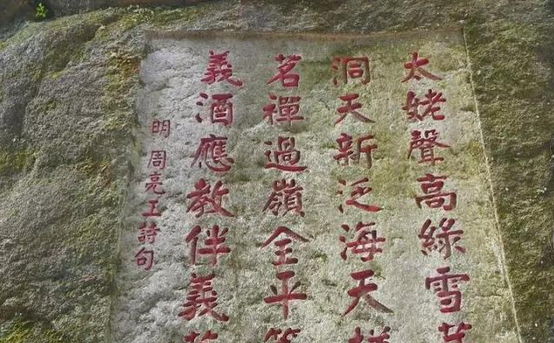 太姥聲高綠雪
洞天新泛海天
茗禪過嶺全平
義酒應教伴義
明 周亮工詩句